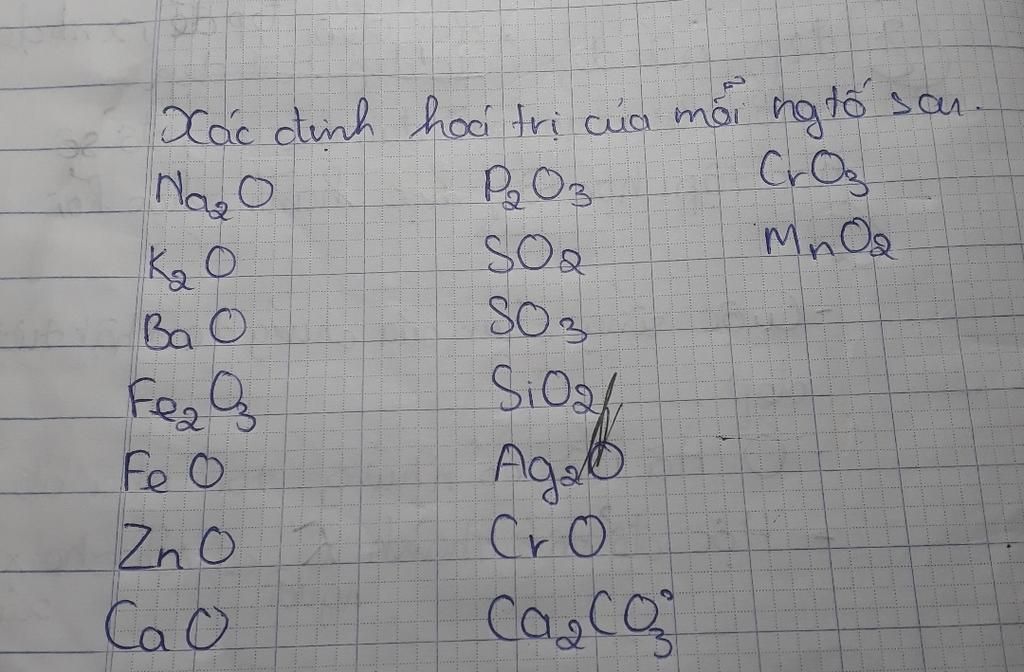 Xác định hoá trị của mỗi ngtố sau.
Na2O
K2O
BaO
Fe2O3
FeO
ZnO
CaO
P2O3
SO2
SO3
SiO2
Ag2O
CrO
Ca2CO3
CrO3
MnO2